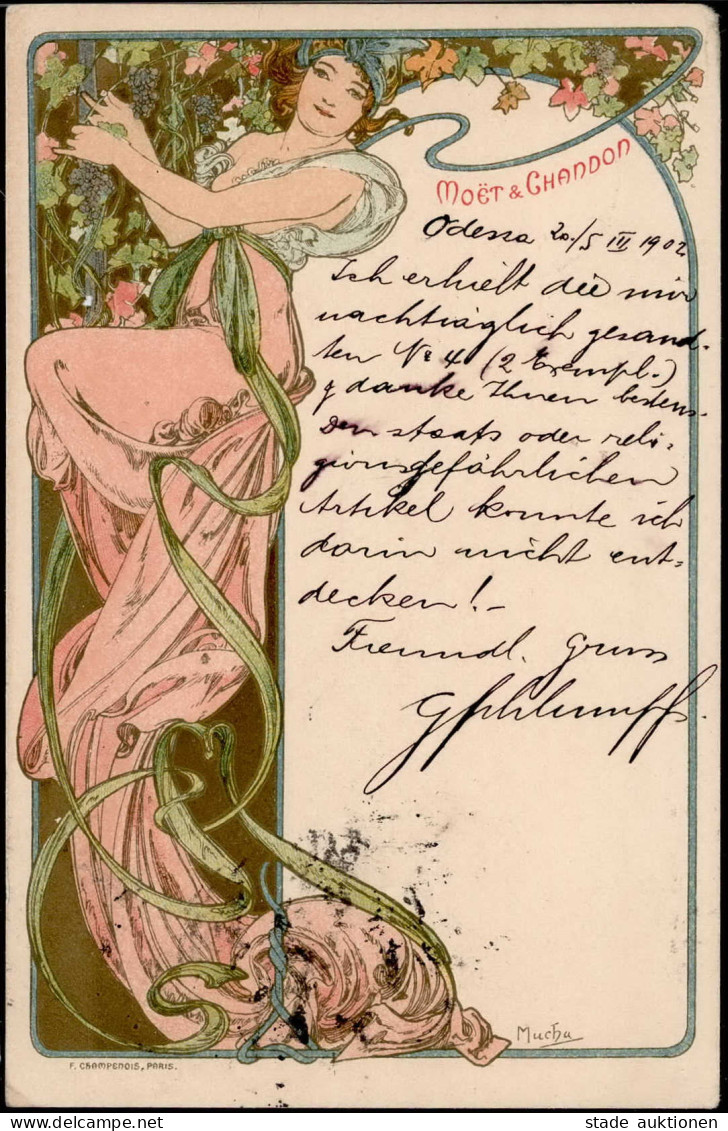 MOËT & CHANDON
Odessa 20./5 III 1902
Ich erhielt die mir
nachträglich gesand-
ten No 4 (2 Exempl.)
& danke Ihnen bestens
Den staats oder reli-
gionsgefährlichen
Artikel konnte ich
darin nicht ent-
decken! -
Freundl. Gruss
Mucha
F. CHAMPENOIS, PARIS.
stade auktionen